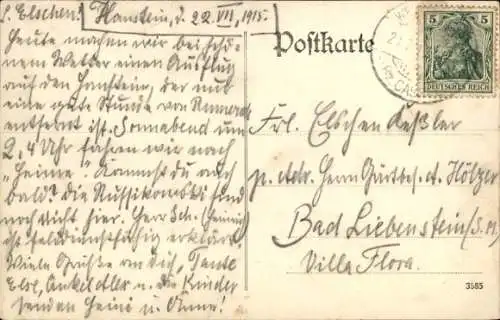 L. Elschen! Hanstein, d. 22. VII. 1915.
Heute machen wir bei schö-
nem Wetter einen Ausflug
auf den Hanstein, der nur
eine gute Stunde von
entfernt ist. Sonnabend um
2,4 Uhr fahren wir nach
"Heime". Kommst du auch
bald? Die sind
noch nicht hier. Herr Sch.
ist felddienstfähig erklärt.
Viele Grüße an dich, Tante
Else, Onkel u. die Kinder
senden Heini u. Änne!
Postkarte
5 5
DEUTSCHES REICH
CAS
Frl. Elschen Keßler
p. Adr. Herrn Gärtbes. A. Hölzer
Bad Liebenstein S. M.
Villa Flora.
3585